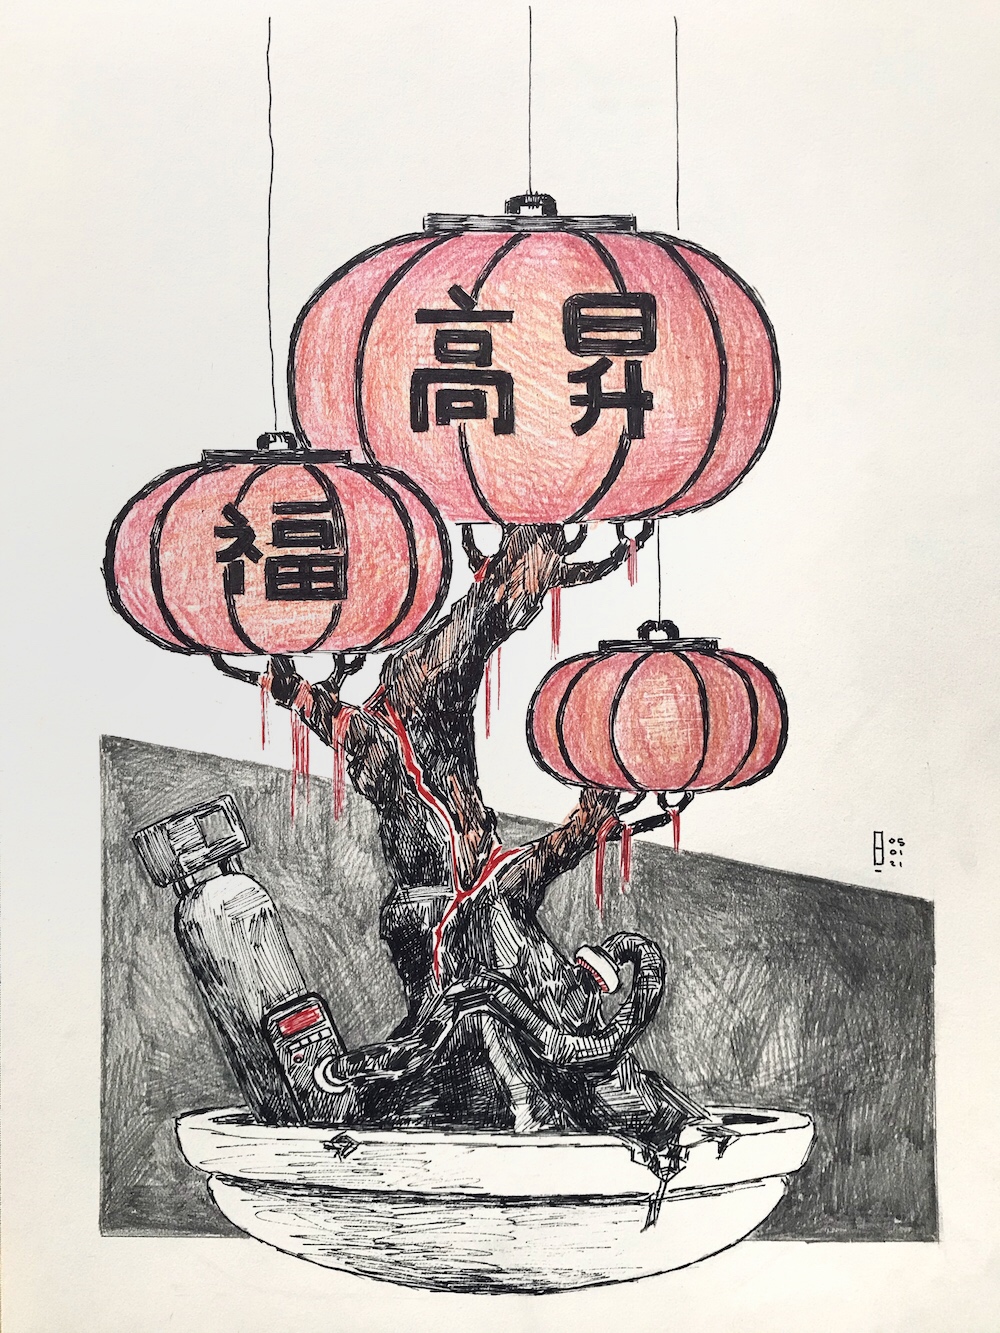 高昇
福
05
01
21